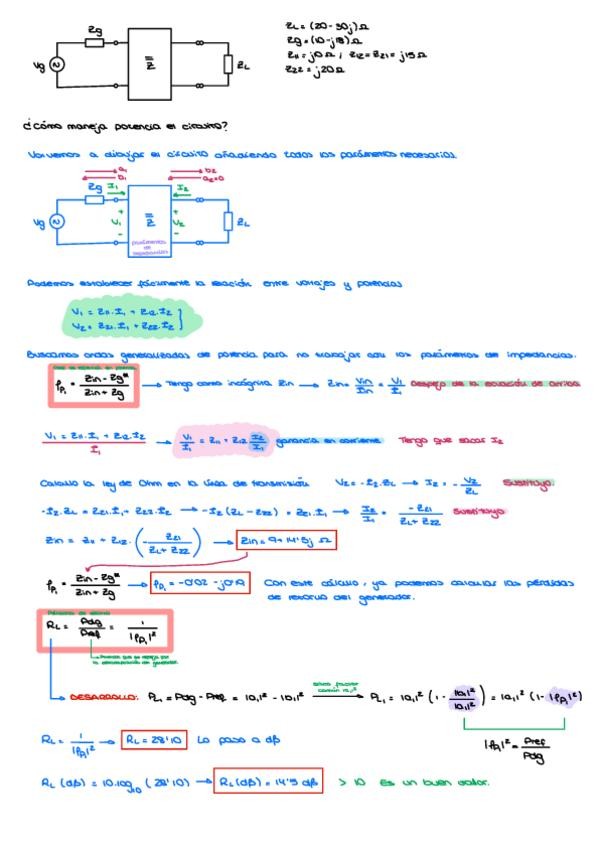 Zg
Vg
Z
ZL
ZL = (20-30j)Ω
Zg = (10-j18)Ω
Z11 = j10Ω ; Z12 = Z21 = j15Ω
Z22 = j20Ω
¿Cómo maneja potencia el circuito?
Volvemos a dibujar el circuito añadiendo todos los parámetros necesarios.
a1
b1
b2
a2=0
Zg
I1
I2
Vg
V1
Z
V2
ZL
parámetros de impedancias
Podemos establecer fácilmente la relación entre voltajes y potencias
V1 = Z11·I1 + Z12·I2
V2 = Z21·I1 + Z22·I2
Buscamos ondas generalizadas de potencia para no trabajar con los parámetros de impedancias.
ρP1 = Zin - Zg* / Zin + Zg → Tengo como incógnita Zin → Zin = Vin / Iin = V1 / I1 Despejo de la ecuación de arriba
V1 = Z11·I1 + Z12·I2 / I1 → V1 / I1 = Z11 + Z12 I2 / I1 ganancia en corriente Tengo que sacar I2
Calculo la ley de Ohm en la línea de transmisión V2 = -I2·ZL → I2 = - V2 / ZL Sustituyo.
-I2·ZL = Z21·I1 + Z22·I2 → -I2 (ZL - Z22) = Z21·I1 → I2 / I1 = -Z21 / ZL + Z22 Sustituyo
Zin = Z11 + Z12·(- Z21 / ZL + Z22) → Zin = 9 + 14'5j Ω
ρP1 = Zin - Zg* / Zin + Zg → ρP1 = -0'02 - j0'19 Con este cálculo, ya podemos calcular las pérdidas
de retorno del generador.
RL = Pdg / Pref = 1 / |ρP1|²
DESARROLLO: PL1 = Pdg - Pref = |a1|² - |b1|² → PL1 = |a1|² (1 - |b1|² / |a1|²) = |a1|² (1 - |ρP1|²)
RL = 1 / |ρP1|² → RL = 28'10 Lo paso a dB
|ρP1|² = Pref / Pdg
RL (dB) = 10·log10 (28'10) → RL (dB) = 14'5 dB > 10 Es un buen valor.